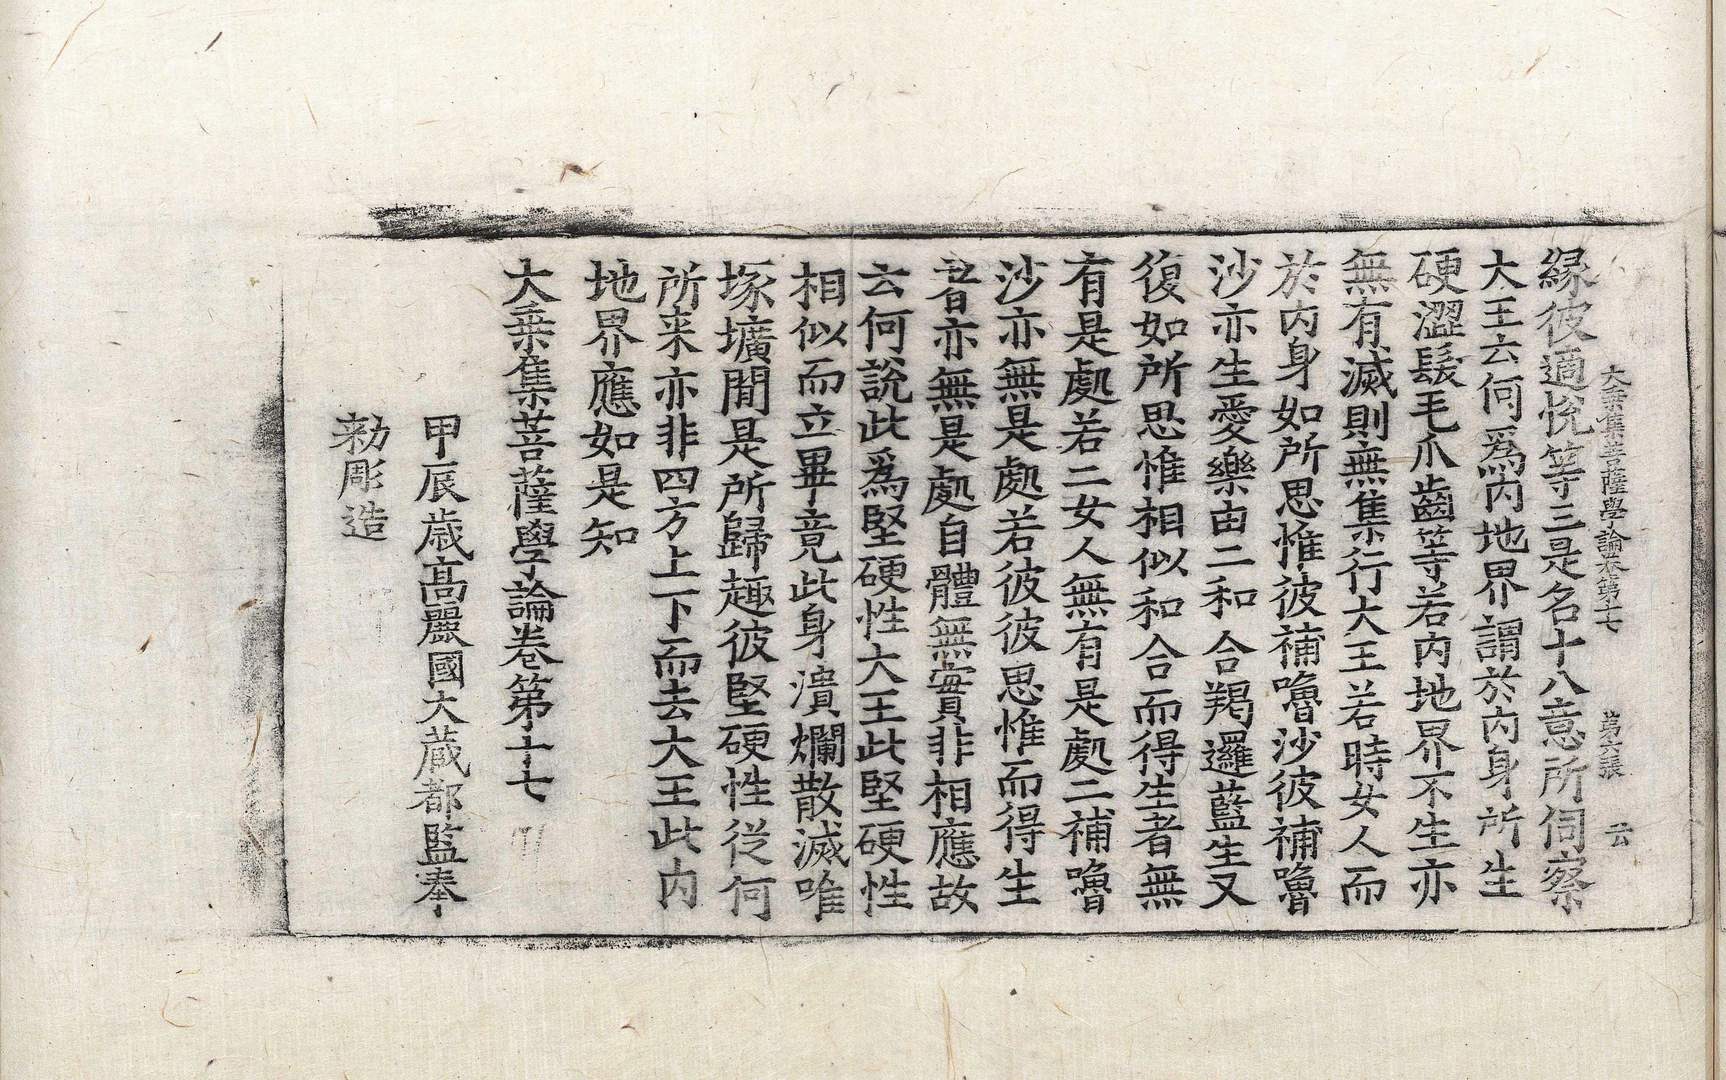 大乗集菩薩學論卷第十七　第六張　云
緣彼適悅等三是名十八意所伺察
大王云何爲內地界謂於內身所生
硬澀髮毛爪齒等若內地界不生亦
無有滅則無集行大王若時女人而
於內身如所思惟彼補嚕沙彼補嚕
沙亦生愛樂由二和合羯邏藍生又
復如所思惟相似和合而得生者無
有是處若二女人無有是處二補嚕
沙亦無是處若彼彼思惟而得生
者亦無是處自體無實非相應故
云何說此爲堅硬性大王此堅硬性
相似而立畢竟此身潰爛散滅唯
塚壙閒是所歸趣彼堅硬性從何
所来亦非四方上下而去大王此內
地界應如是知
大乗集菩薩學論卷第十七
甲辰歳髙麗國大蔵都監奉
勑彫造